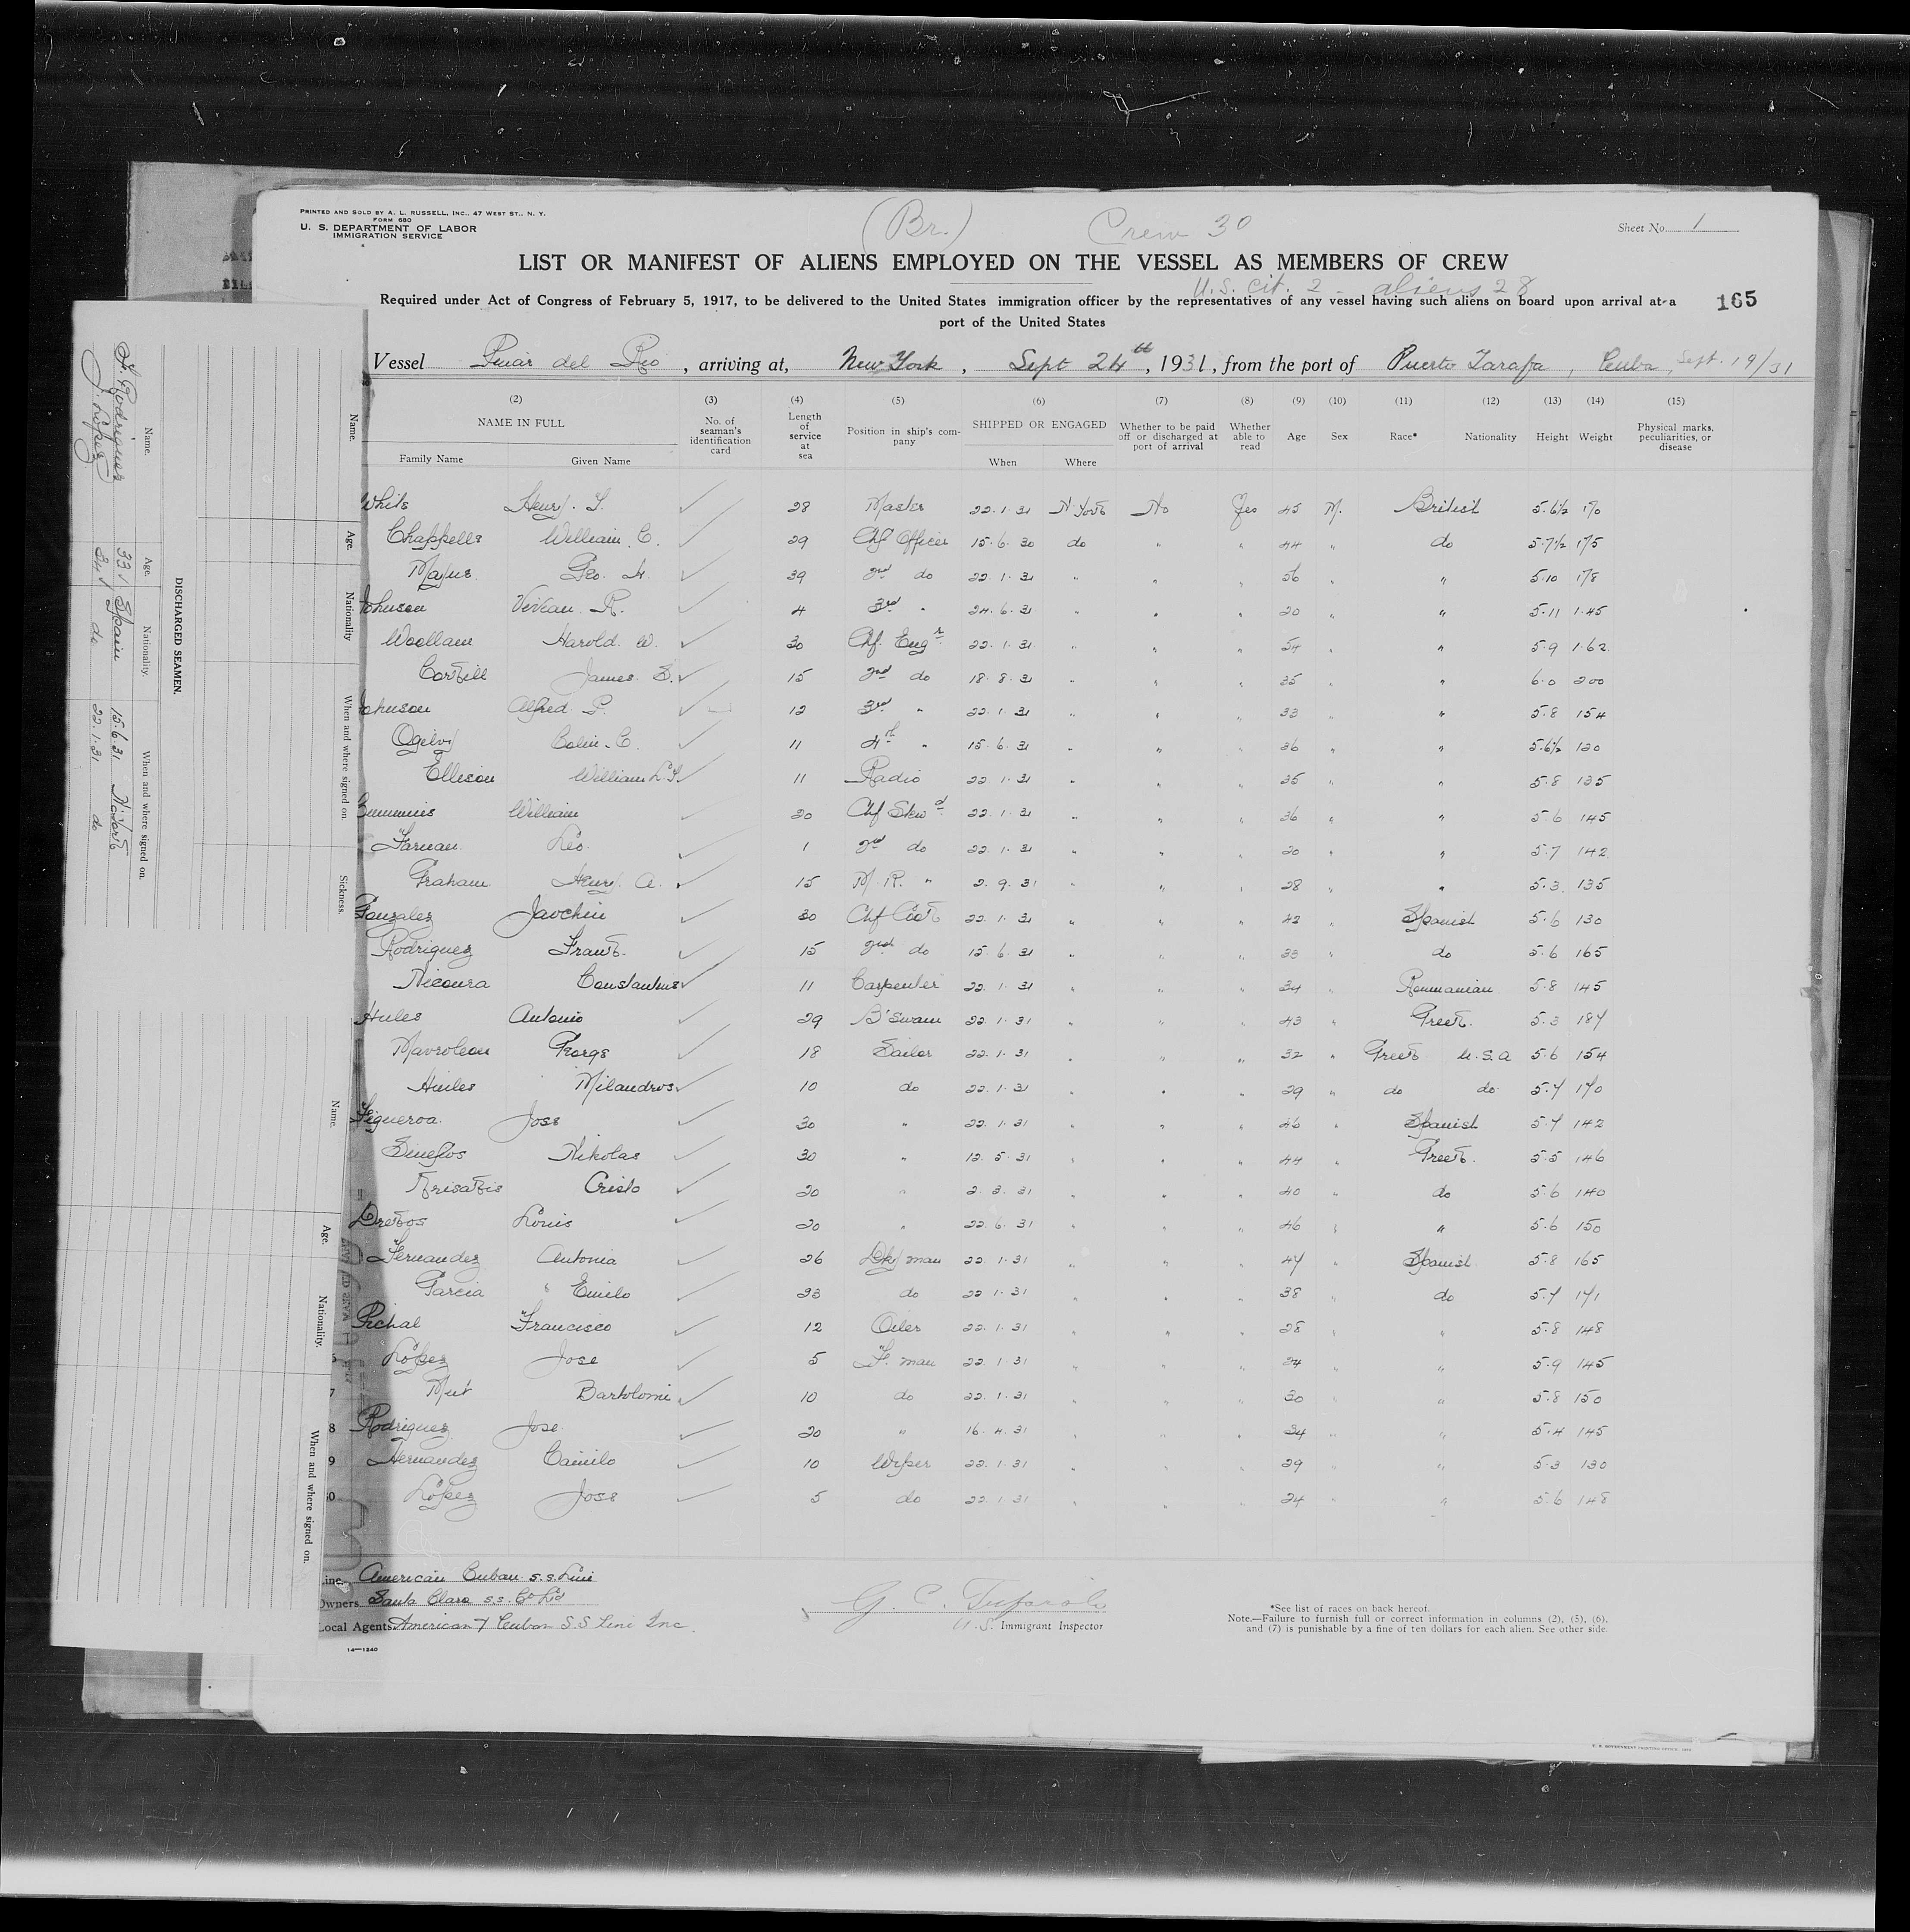 PRINTED AND SOLD BY A. L. RUSSELL, INC., 47 WEST ST., N. Y.
FORM 680
U. S. DEPARTMENT OF LABOR
IMMIGRATION SERVICE
(Br.) Crew 30
Sheet No. 1
LIST OR MANIFEST OF ALIENS EMPLOYED ON THE VESSEL AS MEMBERS OF CREW
U.S. cit. 2 - aliens 28
Required under Act of Congress of February 5, 1917, to be delivered to the United States immigration officer by the representatives of any vessel having such aliens on board upon arrival at a
port of the United States
165
Vessel Pinar del Rio, arriving at, New York, Sept 24th, 1931, from the port of Puerto Tarafa, Cuba, Sept. 19/31
(2) (3) (4) (5) (6) (7) (8) (9) (10) (11) (12) (13) (14) (15)
NAME IN FULL
Family Name Given Name
No. of seaman's identification card
Length of service at sea
Position in ship's company
SHIPPED OR ENGAGED
When Where
Whether to be paid off or discharged at port of arrival
Whether able to read
Age Sex Race* Nationality Height Weight
Physical marks, peculiarities, or disease
White Henry. T. 28 Master 22.1.31 N York No Yes 45 M. British 5.6½ 170
Chappells William. C. 29 Chf Officer 15.6.30 do " " 44 " do 5.7½ 175
Geo. H. 39 2nd do 22.1.31 " " " 56 " " 5.10 178
Johnson Vivian. R. 4 3rd " 24.6.31 " " " 20 " " 5.11 1.45
Woollam Harold. W. 30 Chf. Engr 22.1.31 " " " 54 " " 5.9 1.62
James. S. 15 2nd do 18.8.31 " " " 35 " " 6.0 200
Johnson Alfred. P. 12 3rd " 22.1.31 " " " 33 " " 5.8 154
Ogilvy Colin. C. 11 4th " 15.6.31 " " " 36 " " 5.6½ 130
Ellison William L.T. 11 Radio 22.1.31 " " " 35 " " 5.8 135
William 20 Chf Stewd 22.1.31 " " " 36 " " 5.6 145
Farnan Leo. 1 2nd do 22.1.31 " " " 20 " " 5.7 142
Graham Henry. A. 15 M. R. " 2.9.31 " " " 28 " " 5.3. 135
Gonzalez Javchin 30 Chf Cook 22.1.31 " " " 42 " Spanish 5.6 130
Rodriguez Frank. 15 2nd do 15.6.31 " " " 33 " do 5.6 165
Nicoura Constantins 11 Carpenter 22.1.31 " " " 34 " Roumanian 5.8 145
Hules Antonio 29 B'Swain 22.1.31 " " " 43 " Greek. 5.3 187
Mavroleon George 18 Sailor 22.1.31 " " " 32 " Greek U.S.A 5.6 154
Milandros 10 do 22.1.31 " " " 29 " do do 5.7 170
Figueroa Jose 30 " 22.1.31 " " " 46 " Spanish 5.7 142
Nikolas 30 " 12.5.31 " " " 44 " Greek. 5.5 146
Cristo 20 " 2.3.31 " " " 40 " do 5.6 140
Louis 20 " 22.6.31 " " " 46 " " 5.6 150
Fernandez Antonia 26 Dky man 22.1.31 " " " 47 " Spanish 5.8 165
Garcia Emilo 23 do 22.1.31 " " " 38 " do 5.7 171
Pichal Francisco 12 Oiler 22.1.31 " " " 28 " " 5.8 148
Lopez Jose 5 F. man 22.1.31 " " " 24 " " 5.9 145
7 Mut Bartolomi 10 do 22.1.31 " " " 30 " " 5.8 150
8 Rodriguez Jose 20 " 16.4.31 " " " 34 " " 5.4 145
9 Hernandez Camilo 10 Wiper 22.1.31 " " " 29 " " 5.3 130
30 Lopez Jose 5 do 22.1.31 " " " 24 " " 5.6 148
Line American Cuban S.S. Line
Owners Santa Clara S.S. Co Ltd
Local Agents American & Cuban S.S Line Inc.
G. C.
U.S. Immigrant Inspector
*See list of races on back hereof.
Note.—Failure to furnish full or correct information in columns (2), (5), (6),
and (7) is punishable by a fine of ten dollars for each alien. See other side.
14—1240
U. S. GOVERNMENT PRINTING OFFICE
DISCHARGED SEAMEN.
Name. Age. Nationality. When and where signed on.
F. Rodriguez 33 Spain 15.6.31 N. York
J. Lopez 24 do 22.1.31 do
Name. Age. Nationality When and where signed on. Sickness.
Name. Age. Nationality. When and where signed on.